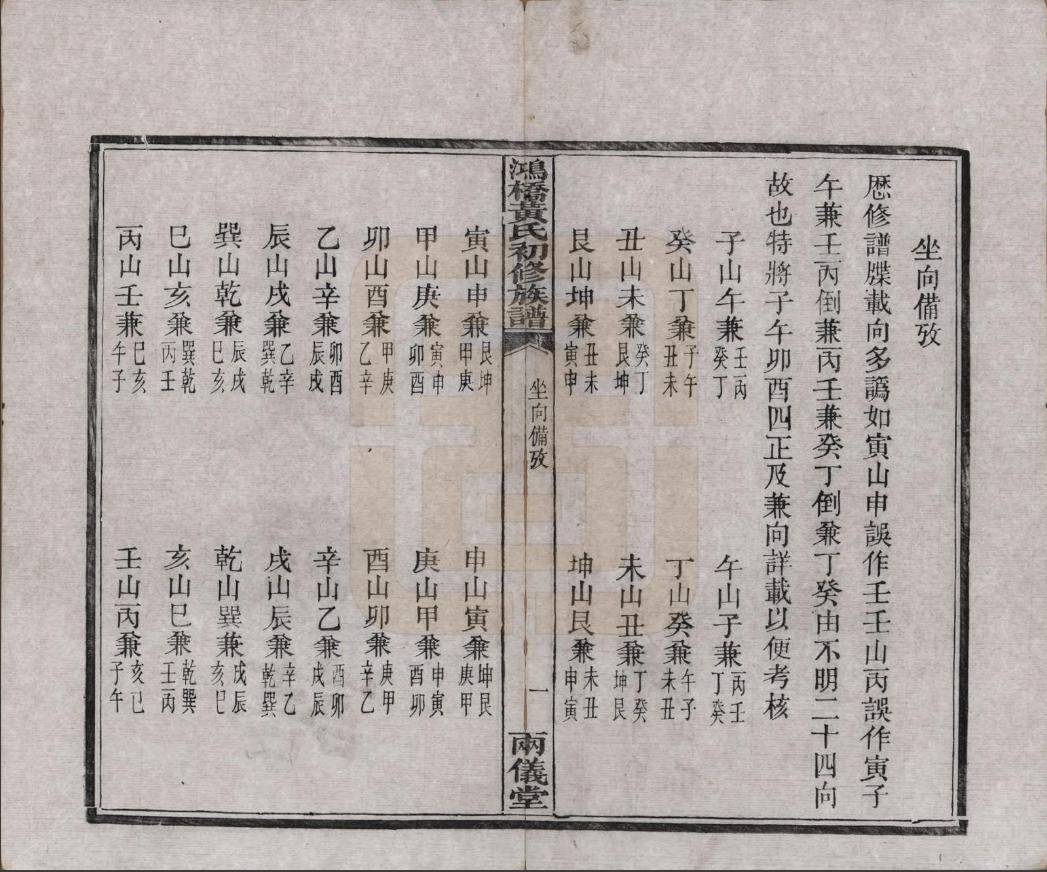 坐向備攷
厯修譜牒載向多譌如寅山申誤作壬壬山丙誤作寅子
午兼壬丙倒兼丙壬兼癸丁倒兼丁癸由不明二十四向
故也特將子午卯酉四正及兼向詳載以便考核
子山午兼壬丙癸丁 午山子兼丙壬丁癸
癸山丁兼子午丑未 丁山癸兼午子未丑
丑山未兼癸丁艮坤 未山丑兼丁癸坤艮
艮山坤兼丑未寅申 坤山艮兼未丑申寅
鴻橋黃氏初修族譜 坐向備攷 一 兩儀堂
寅山申兼艮坤甲庚 申山寅兼坤艮庚甲
甲山庚兼寅申卯酉 庚山甲兼申寅酉卯
卯山酉兼甲庚乙辛 酉山卯兼庚甲辛乙
乙山辛兼卯酉辰戌 辛山乙兼酉卯戌辰
辰山戌兼乙辛巽乾 戌山辰兼辛乙乾巽
巽山乾兼辰戌巳亥 乾山巽兼戌辰亥巳
巳山亥兼巽乾丙壬 亥山巳兼乾巽壬丙
丙山壬兼巳亥午子 壬山丙兼亥巳子午